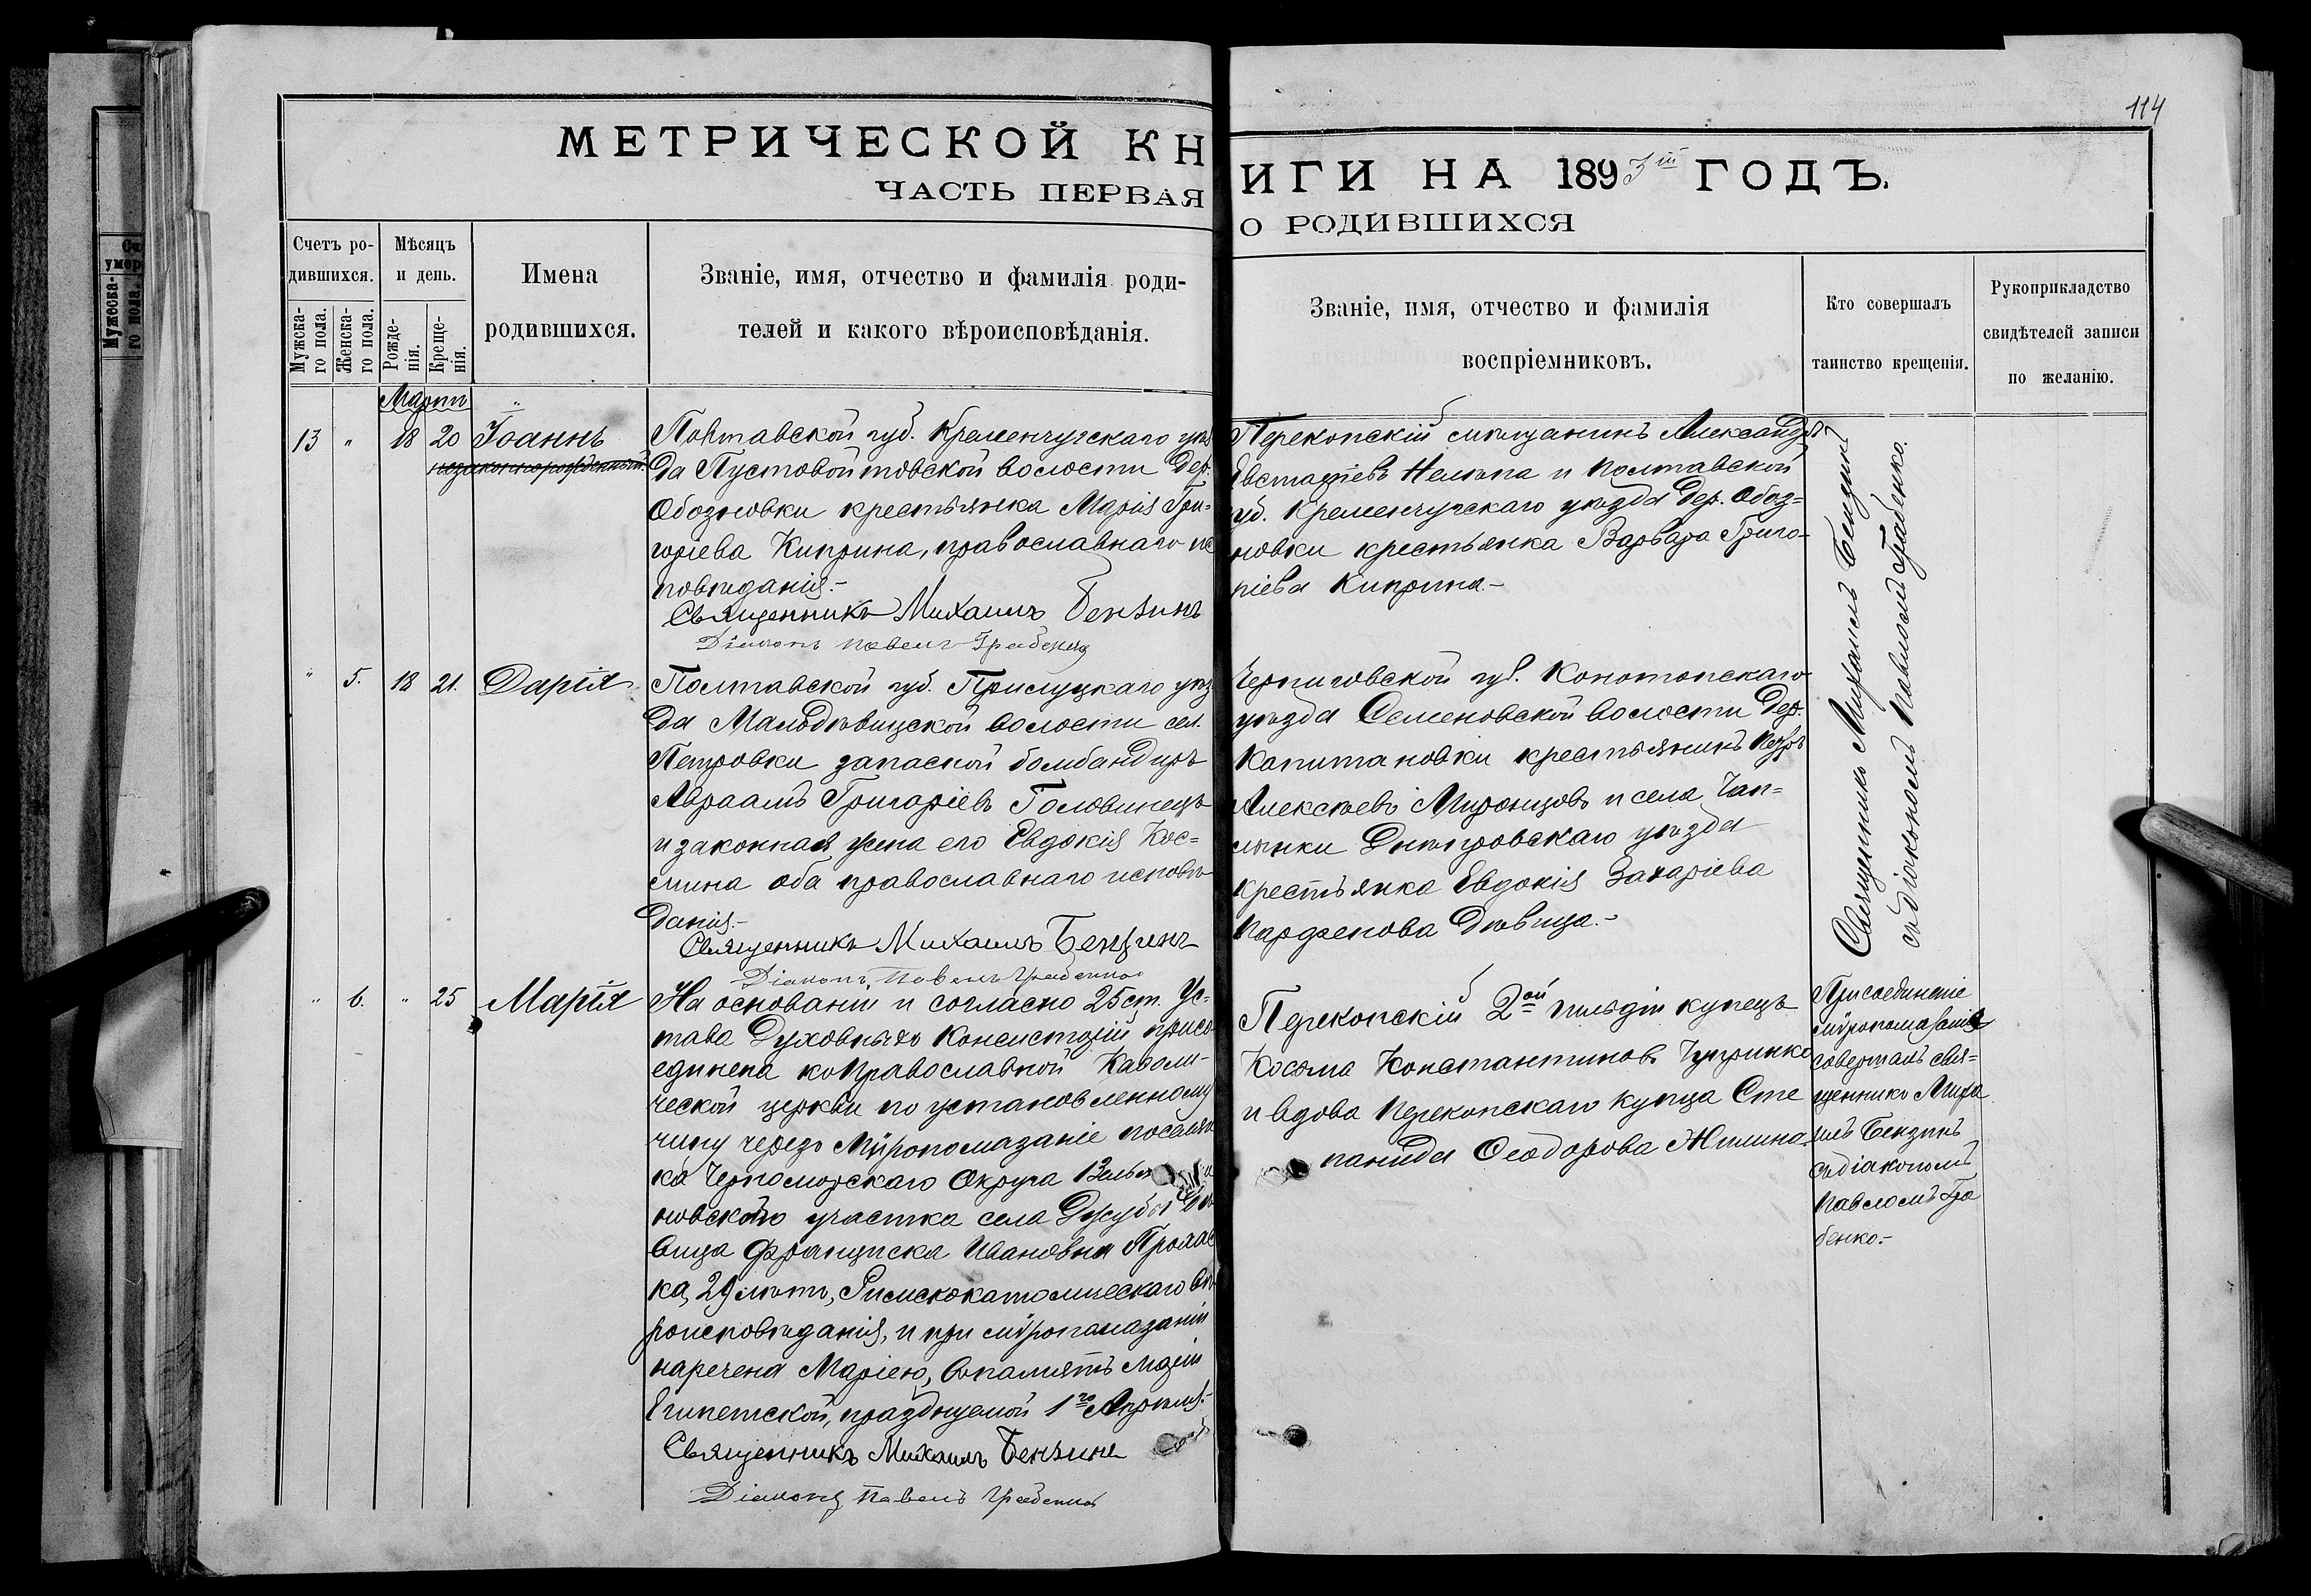 114
МЕТРИЧЕСКОЙ КНИГИ НА 1893 ій ГОДЪ.
ЧАСТЬ ПЕРВАЯ О РОДИВШИХСЯ
Счетъ родившихся.
Мужска-
го пола.
Женска-
го пола.
Мѣсяцъ
и день.
Рожде-
нія.
Креще-
нія.
Имена
родившихся.
Званіе, имя, отчество и фамилія роди-
телей и какого вѣроисповѣданія.
Званіе, имя, отчество и фамилія
воспріемниковъ.
Кто совершалъ
таинство крещенія.
Рукоприкладство
свидѣтелей записи
по желанію.
Мартъ
13 " 18 20 Іоаннъ
незаконнорожденный
Полтавской губ. Кременчугскаго уѣз
да Пустовойтовской волости дер.
Обозновки крестьянка Марія Гри-
горіева Киприна, православнаго ис
повѣданія.-
Священникъ Михаилъ Бензинъ
Діаконъ Павелъ Грабенко
Перекопскій мѣщанинъ Александръ
Евстафіевъ Нелѣпа и Полтавской
губ. Кременчугскаго уѣзда дер. Обоз=
новки крестьянка Варвара Григо-
ріева Киприна.-
Священникъ Михаилъ Бензинъ
съ діакономъ Павломъ Грабенко.
" 5. 18 21. Дарія
Полтавской губ. Прилуцкаго уѣз
да Мальдѣвицской волости сел.
Петровки запасной бомбандиръ
Авраамъ Григоріевъ Головинецъ
и законная жена его Евдокія Кос=
мина оба православнаго исповѣ
данія.-
Священникъ Михаилъ Бензинъ
Діаконъ Павелъ Грабенко
Черниговской губ. Конотопскаго
уѣзда Семеновской волости дер.
Капитановки крестьянинъ Петръ
Алексѣевъ Миронцовъ и села Чап=
лынки Днѣпровскаго уѣзда
крестьянка Евдокія Захаріева
Парфенова дѣвица.-
" 6. " 25 Марія
На основаніи и согласно 25 ст. Ус=
тава Духовныхъ Консисторій присо
единена къ Православной Каѳоли-
ческой церкви по установленному
чину черезъ Мѵропомазаніе поселян
ка Черноморскаго Округа
новскаго участка села Джубы дѣ
вица Франциска Ивановна
ка, 29 лѣтъ, Римскокатолическаго вѣ
роисповѣданія, и при мѵропомазаніи
наречена Маріею, въ память Маріи
Египетской, празднуемой 1го Апрѣля.-
Священникъ Михаилъ Бензинъ
Діаконъ Павелъ Грабенко
Перекопскій 2ой гильдіи купецъ
Косьма Константиновъ
и вдова Перекопскаго купца Сте
панида Ѳеодорова Жилина
Присоединеніе
мѵропомазанія
совершалъ свя=
щенникъ Миха
илъ Бензинъ
съ діакономъ
Павломъ Гра
бенко.-